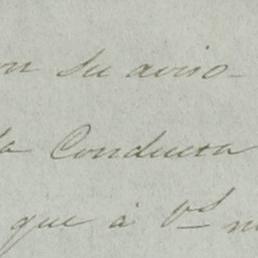 on su aviso
la Conducta
que á Vs